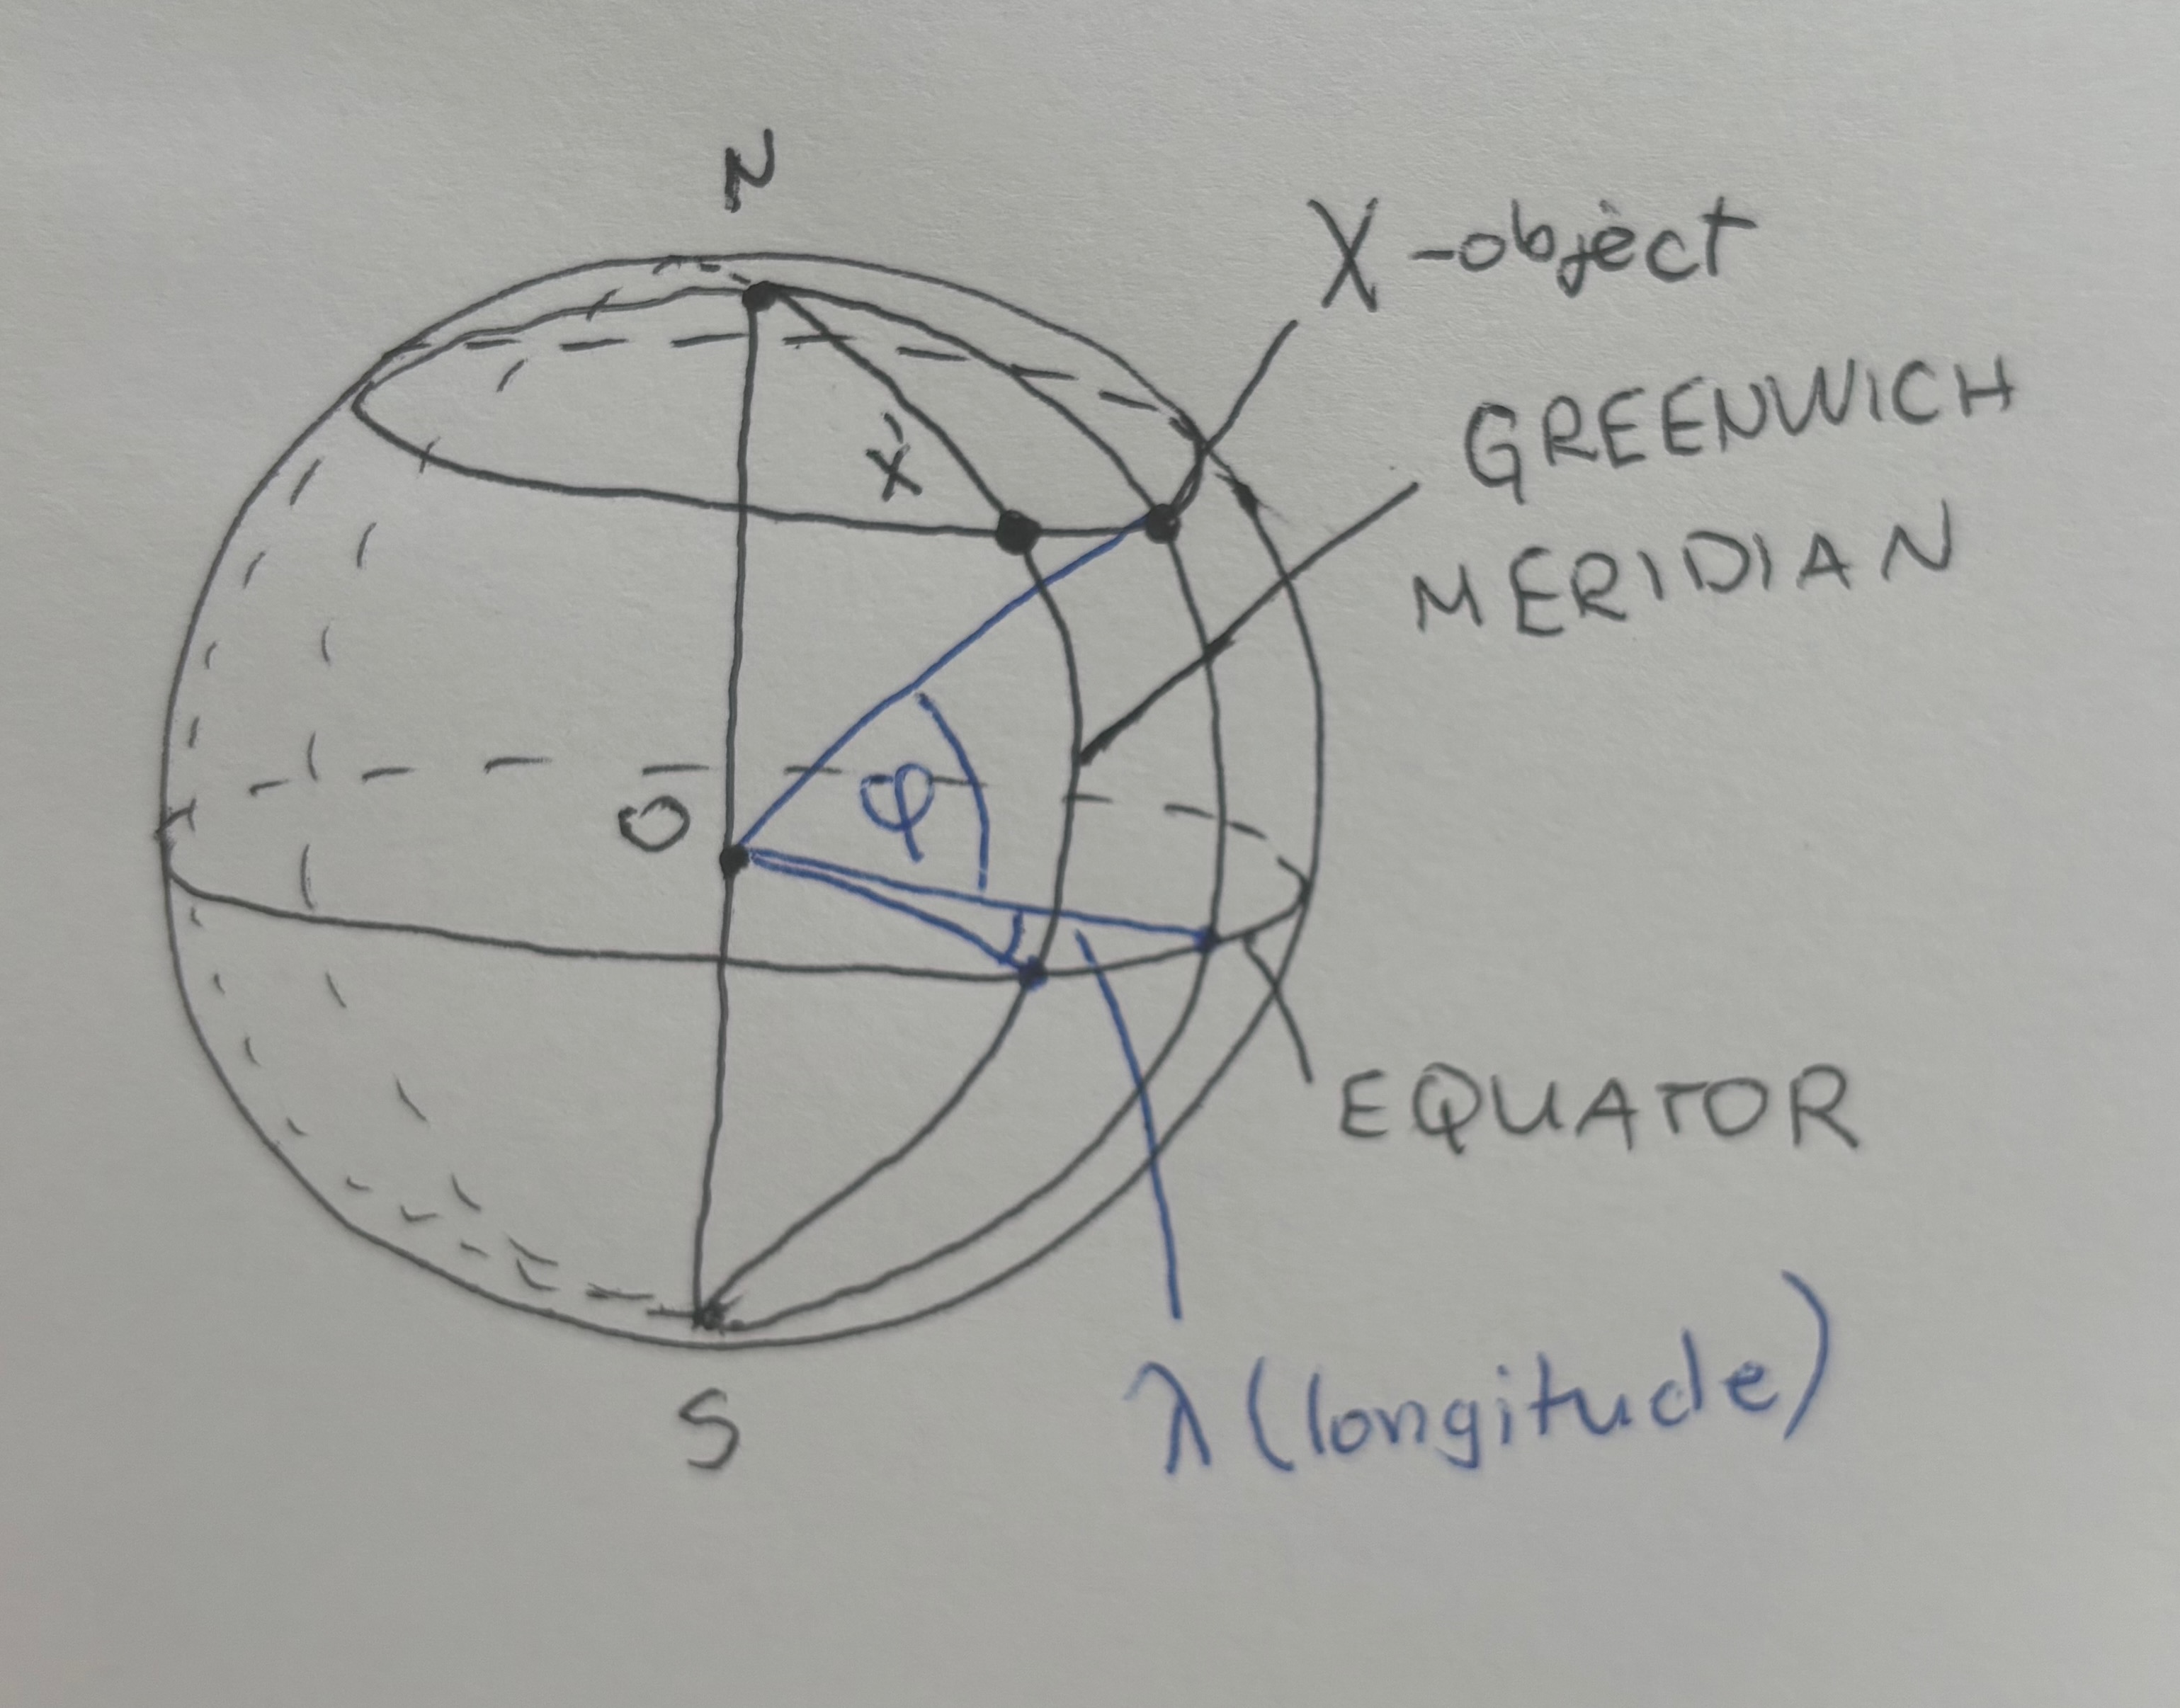 N
X-object
GREENWICH
MERIDIAN
X
O
φ
EQUATOR
λ (longitude)
S